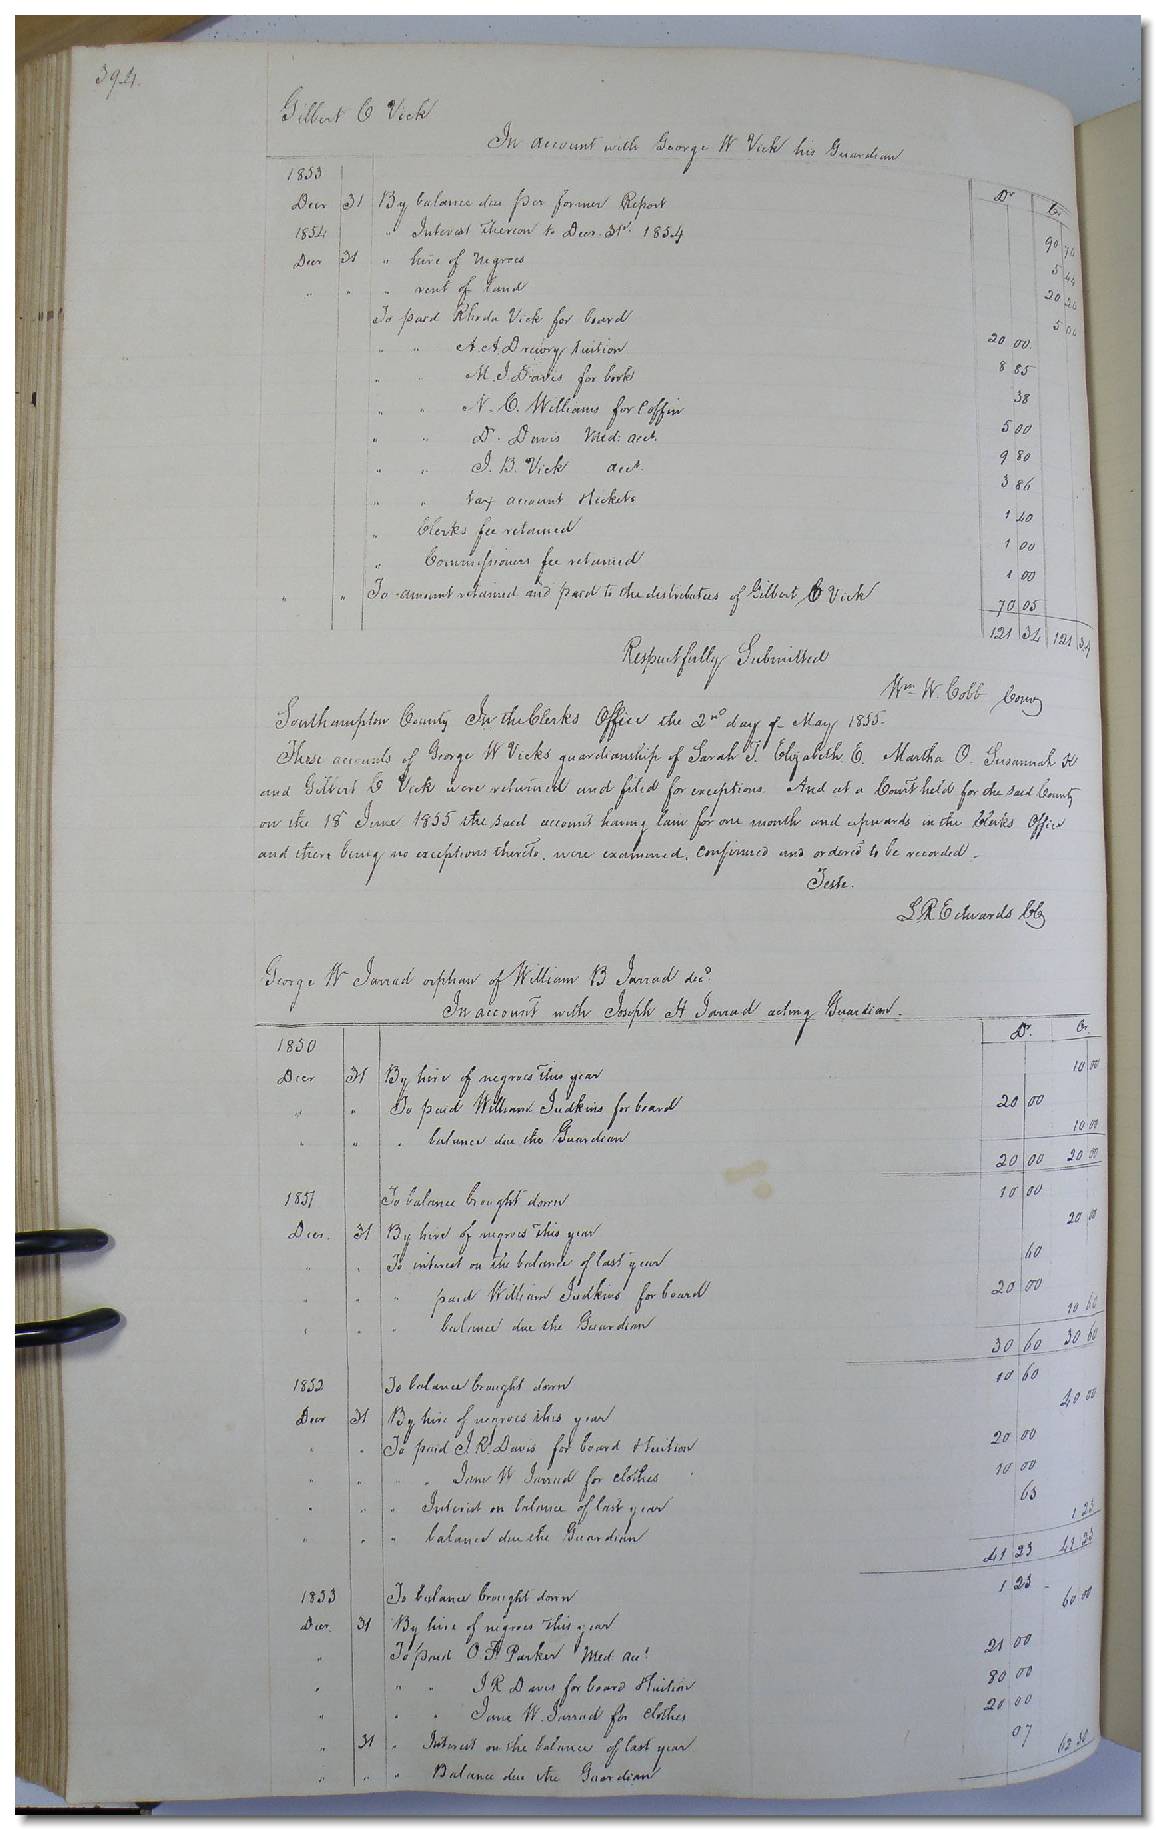 394.
Gilbert C Vick
In account with George W Vick his Guardian
Dr Cr
1853
Decr 31 By balance due per former Report 90 74
1854 " Interest thereon to Decr. 31st. 1854 5 40
Decr 31 " hire of negroes 20 20
" " " rent of land 5 00
To paid Rhoda Vick for board 20 00
" " A. A. Drewry tuition 8 85
" " M. J. Davis for books 38
" " N. C. Williams for Coffin 5 00
" " Dr. Davis Med: acct. 9 80
" " J. B. Vick acct. 3 86
" " tax account & tickets 1 40
" Clerks fee retained 1 00
" Commissioners fee retained 1 00
" " To amount retained and paid to the distributees of Gilbert C Vick 70 05
121 34 121 34
Respectfully Submitted
Wm. W. Cobb Comr
Southampton County In the Clerks Office the 2nd day of May 1855.
These accounts of George W Vicks guardianship of Sarah J. Elizabeth E. Martha O. Susannah
and Gilbert C Vick were returned and filed for exceptions. And at a Court held for the said County
on the 18 June 1855 the said account having lain for one month and upwards in the Clerks Office
and there being no exceptions thereto, were examined, confirmed and ordered to be recorded.
Teste.
L R Edwards Clk
George W Jarrad orphan of William B Jarrad decd.
In account with Joseph H Jarrad acting Guardian.
Dr. Cr.
1850
Decr 31 By hire of negroes this year 10 00
" " To paid William Judkins for board 20 00
" " " balance due the Guardian 10 00
20 00 20 00
1851 To balance brought down 10 00
Decr. 31 By hire of negroes this year 20 00
" " To interest on the balance of last year 60
" " " paid William Judkins for board 20 00
" " " balance due the Guardian 10 60
30 60 30 60
1852 To balance brought down 10 60
Decr 31 By hire of negroes this year 40 00
" " To paid J. R. Davis for board & tuition 20 00
" " " " Jane W Jarrad for clothes 10 00
" " " Interest on balance of last year 63
" " " balance due the Guardian 1 23
41 23 41 23
1853 To balance brought down 1 23
Decr. 31 By hire of negroes this year 60 00
" To paid O F Parker Med acct 21 00
" " " J R Davis for board & tuition 80 00
" " " Jane W. Jarrad for clothes 20 00
" 31 " Interest on the balance of last year 07
" " " Balance due the Guardian 62 30